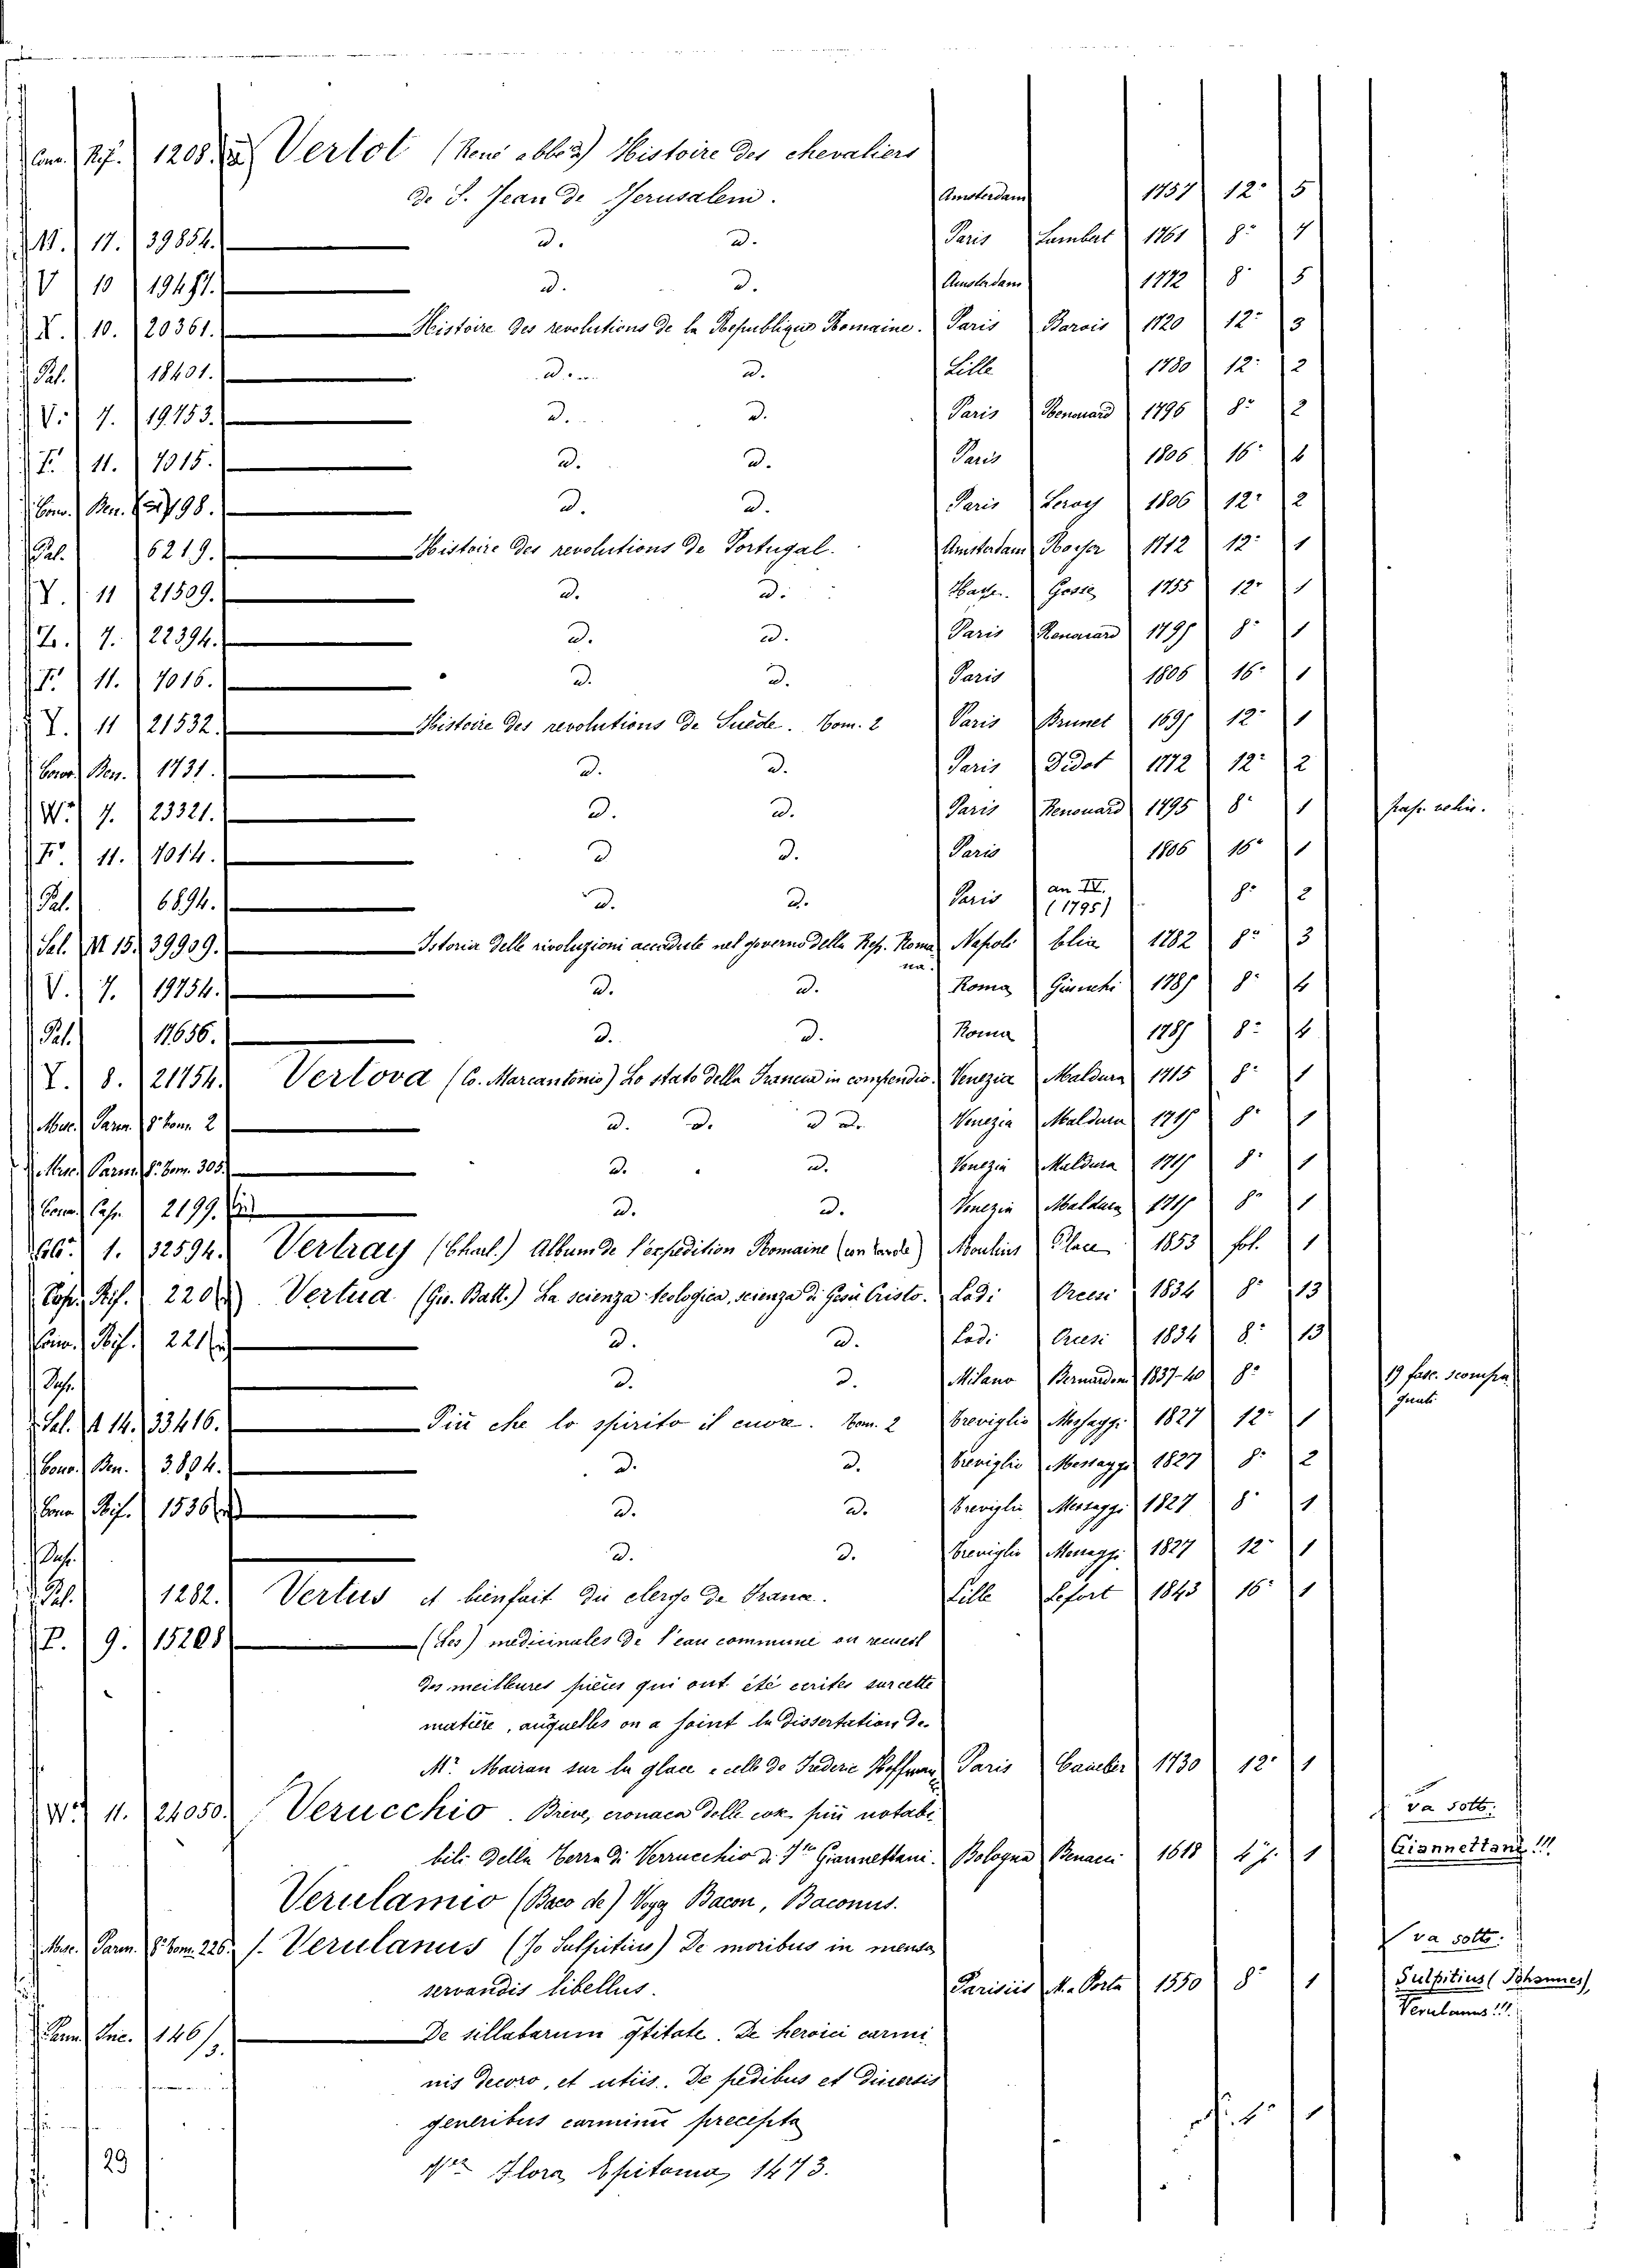 Conv. Rif. 1208. Vertot (René abbé) Histoire des chevaliers
de S. Jean de Jerusalem. Amsterdam 1757 12° 5
M. 17. 39854. d. d. Paris Lambert 1761 8° 7
V 10 19487. d. d. Amsterdam 1772 8° 5
X. 10. 20361. Histoire des revolutions de la Republique Romaine. Paris Barois 1720 12° 3
Pal. 18401. d. d. Lille 1780 12° 2
V. 7. 19753. d. d. Paris Renouard 1796 8° 2
F. 11. 7015. d. d. Paris 1806 16° 4
Conv. Ben. 2798. d. d. Paris Leroy 1806 12° 2
Pal. 6219. Histoire des revolutions de Portugal. Amsterdam Royer 1712 12° 1
Y. 11 21509. d. d. Haye. Gosse 1755 12° 1
Z. 7. 22394. d. d. Paris Renouard 1795 8° 1
F. 11. 7016. d. d. Paris 1806 16° 1
Y. 11 21532. Histoire des revolutions de Suède. Tom. 2 Paris Brunet 1695 12° 1
Conv. Ben. 1731. d. d. Paris Didot 1772 12° 2
W. 7. 23321. d. d. Paris Renouard 1795 8° 1
F. 11. 7014. d d. Paris 1806 16° 1
Pal. 6894. d. d. Paris an IV. (1795) 8° 2
Sal. M 15. 39909. Istoria delle rivoluzioni accadute nel governo della Rep. Romana. Napoli Elia 1782 8° 3
V. 7. 19754. d. d. Roma 1785 8° 4
Pal. 17656. d. d. Roma 1785 8° 4
Y. 8. 21754. Vertova (C. Marcantonio) Lo stato della Francia in compendio. Venezia Maldura 1715 8° 1
Misc. Parm. 8° tom. 2 d. d. d d. Venezia Maldura 1715 8° 1
Misc. Parm. 8° tom. 305. d. d. Venezia Maldura 1715 8° 1
Conv. Cap. 2199. d. d. Venezia Maldura 1715 8° 1
1. 32594. Vertray (Charl.) Album de l'expedition Romaine (en tavole) Moulins Place 1853 fol. 1
Rif. 220 Vertua (Gio. Batt.) La scienza teologica, scienza di Gesù Cristo. Lodi Orcesi 1834 8° 13
Conv. Rif. 221 d. d. Lodi Orcesi 1834 8° 13
Dup. d. d. Milano Bernardoni 1837-40 8° 19 fasc. scompagnati
Sal. A 14. 33416. Più che lo spirito il cuore. Tom. 2 Treviglio Messaggi 1827 12° 1
Conv. Ben. 3.894. d. d. Treviglio Messaggi 1827 8° 2
Conv. Rif. 1536 d. d. Treviglio Messaggi 1827 8° 1
Dup. d. d. Treviglio Messaggi 1827 12° 1
Pal. 1282. Vertus et bienfait du clergé de France. Lille Lefort 1843 16° 1
P. 9. 15208 (Les) medicinales de l'eau commune ou recueil
des meilleures pièces qui ont été ecrites sur cette
matière, auquelles on a joint la dissertation de
Mr. Mairan sur la glace e celle de Frederic Hoffman Paris Cavelier 1730 12° 1
W. 11. 24050. Verucchio. Breve, cronaca delle cose più notabi- va sotto:
bili della Terra di Verrucchio di Giannettani. Bologna Benacci 1618 4° p. 1 Giannettani!!!
Verulamio (Baco de) Vegg Bacon, Baconus.
Misc. Parm. 8° tom. 226. 1. Verulanus (Jo Sulpitius) De moribus in mensa va sotto:
servandis libellus. Parisiis M. a Porta 1550 8° 1 Sulpitius (Johannes)
Verulanus!!!
Parm. Inc. 146/3. De sillabarum qtitate. De heroici carmi
nis decoro, et utiis. De pedibus et diversis
generibus carminu precepta
Flora Epitoma 1473.
29